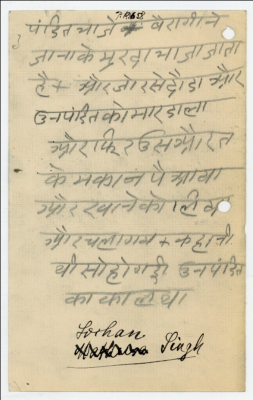 पंडित भाजे वैरागी ने
जाना के मुरदा भाजा जाता
है + और जोर से दौडा और
उन पंडित को मारडाला
और फिर उस औरत
के मकान पै आया
और खाने को
और चला गया + कहानी
थी सो हो गई उन पंडित
का काल था
Sohan
Singh